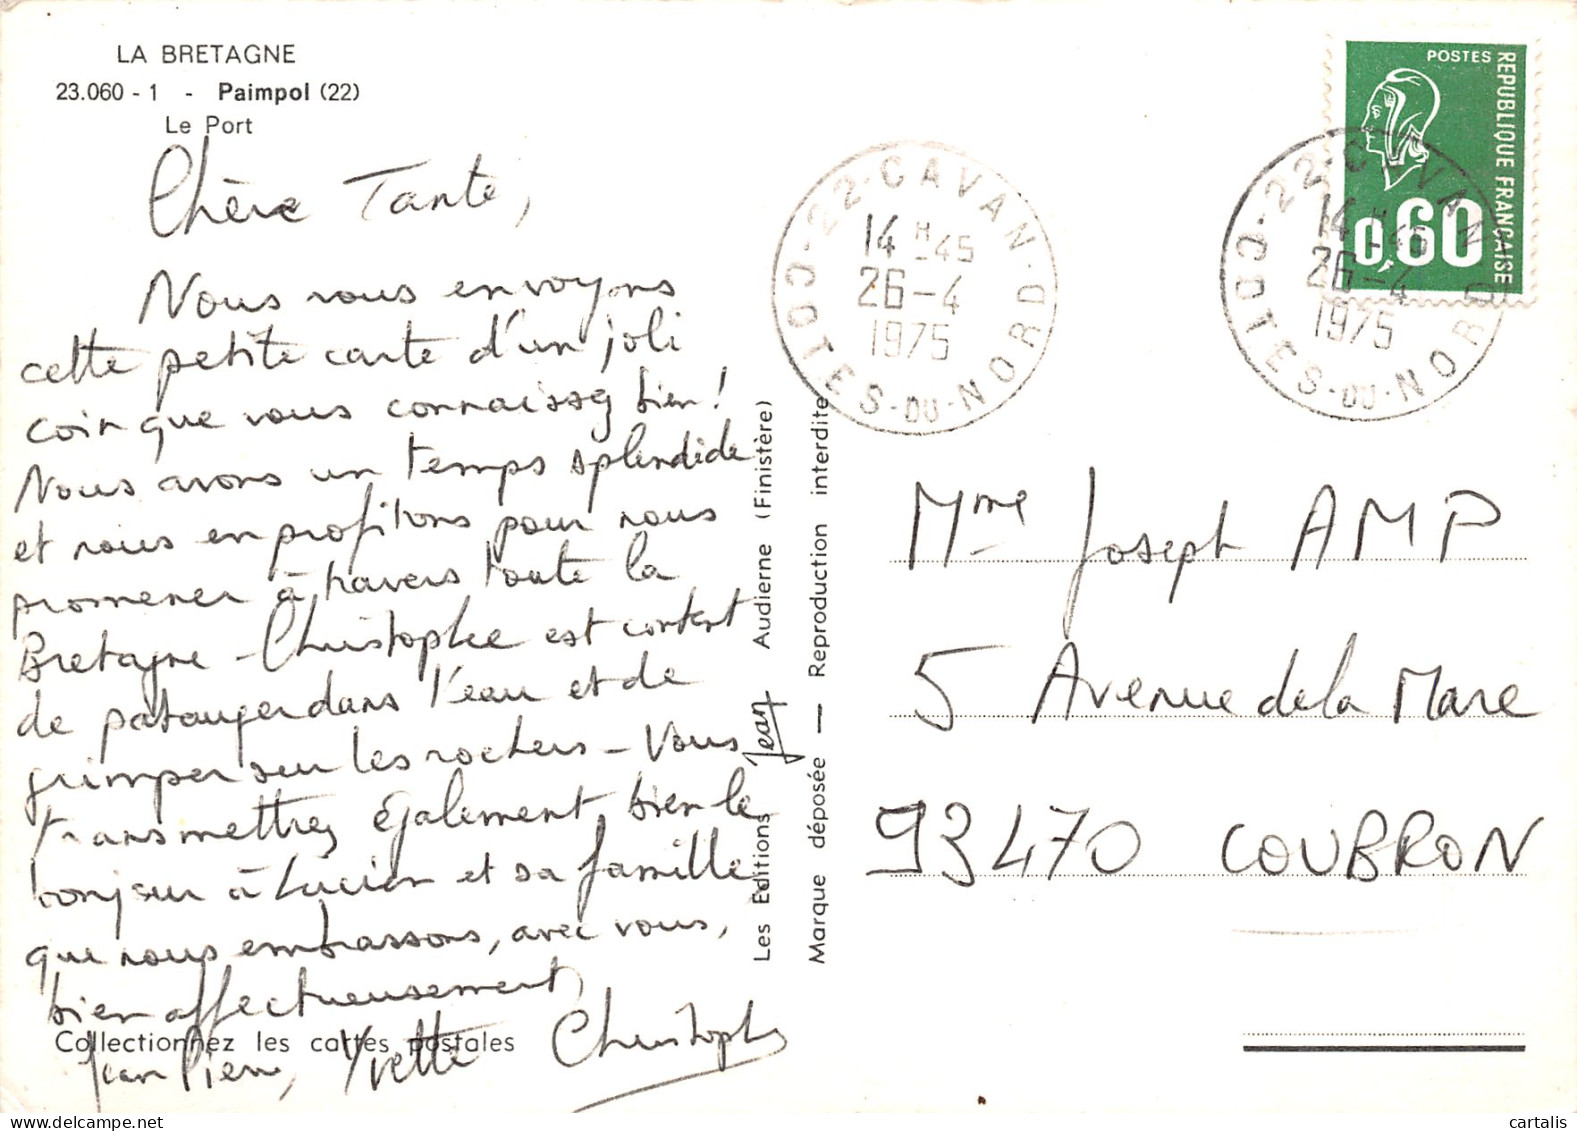 LA BRETAGNE
23.060 - 1 - Paimpol (22)
Le Port
Chère Tante,
Nous vous envoyons
cette petite carte d'un joli
coin que vous connaissez bien !
Nous avons un temps splendide
et nous en profitons pour nous
promener à travers toute la
Bretagne - Christophe est content
de patauger dans l'eau et de
grimper sur les rochers - Vous
transmettrez également bien le
bonjour à Lucien et sa famille
que nous embrassons, avec vous,
bien affectueusement,
Jean Pierre, Yvette Christophe
Collectionnez les cartes postales
Les Editions Jean Audierne (Finistère)
Marque déposée — Reproduction interdite
22 - CAVAN
14 H -45
26 - 4
1975
COTES - DU - NORD
POSTES
REPUBLIQUE FRANÇAISE
0,60
22 - CAVAN
14 H -45
26 - 4
1975
COTES - DU - NORD
Mme Joseph AMP
5 Avenue de la Mare
93470 COUBRON
© cartalis
delcampe.net